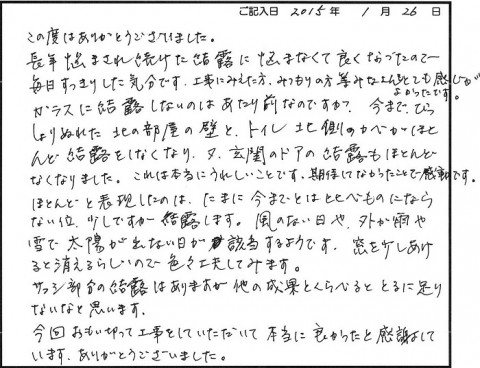 ご記入日 2015年 1月 26日
この度はありがとうございました。
長年悩まされ続けた結露に悩まなくて良くなったので
毎日すっきりした気分です。工事にみえた方、みつもりの方等みなさんとても感じが
よかったです。
ガラスに結露しないのはあたり前なのですが、今まで、びっ
しょりぬれた北の部屋の壁と、トイレ北側のカベがほと
んど結露をしなくなり、又、玄関のドアの結露もほとんど
なくなりました。これは本当にうれしいことです。期待してなかったことで感動です。
ほとんどと表現したのは、たまに今までとはくらべものにならな
ない位、少しですが結露します。風のない日や、外が雨や
雪で太陽が出ない日が該当するようです。窓を少しあけ
ると消えるらしいので色々工夫してみます。
サッシ部分の結露はありますが他の成果とくらべるととるに足り
ないなと思います。
今回おもい切って工事をしていただいて本当に良かったと感謝して
います。ありがとうございました。